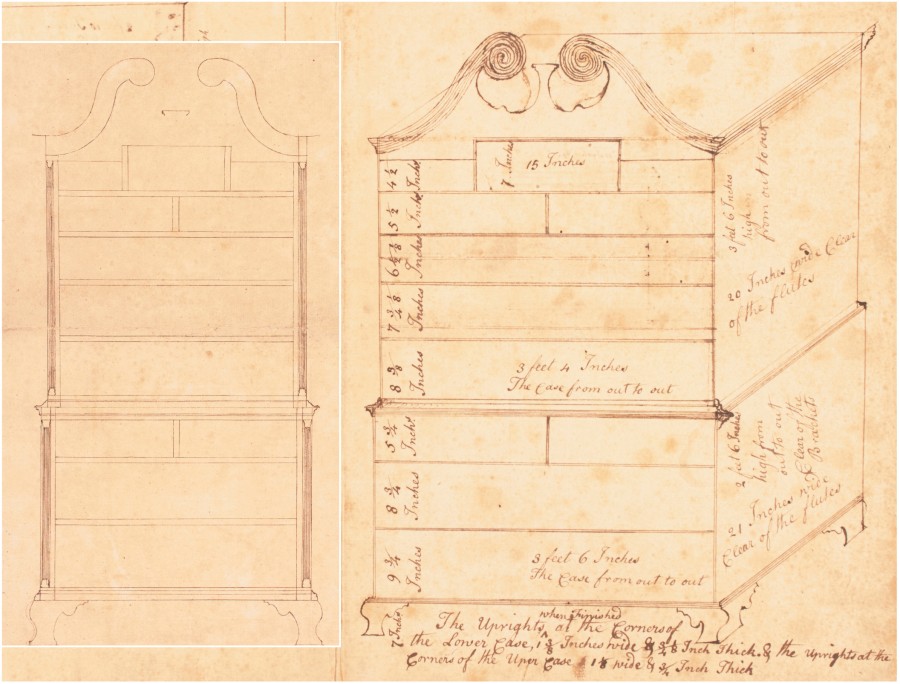 7 Inches
15 Inches
4 ½ Inchs
5 ½ Inchs
6 ½ Inches
7 ¾ Inches
8 Inches
3 feet 4 Inches
The Case from out to out
5 ¾ Inchs
8 ¾ Inches
9 ¾ Inches
3 feet 6 Inches
The Case from out to out
3 feet 6 Inches
high
from out to out
20 Inches wide Clear
of the flutes
2 feet 6 Inches
high from
out to out
Clear of the
Brackets
21 Inches wide
Clear of the flutes
7 Inches
The Uprights when Finished at the Corners of
the Lower Case, 1 Inches wide & Inch Thick. & the Uprights at the
Corners of the Uper Case 1 wide & ¾ Inch Thick